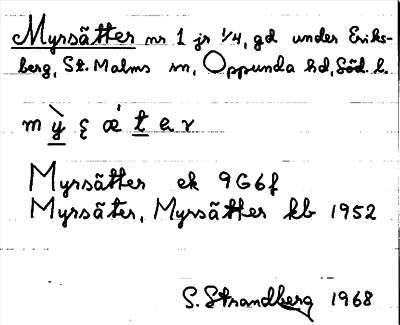 Myrsätter nr 1 jr 1/4, gd under Eriks-
berg, St. Malms sn, Oppunda hd, Söd. l.
m ỳ̖ ξ ǽ t e r
Myrsätter ek 9G6f
Myrsäter, Myrsätter kb 1952
S. Strandberg 1968